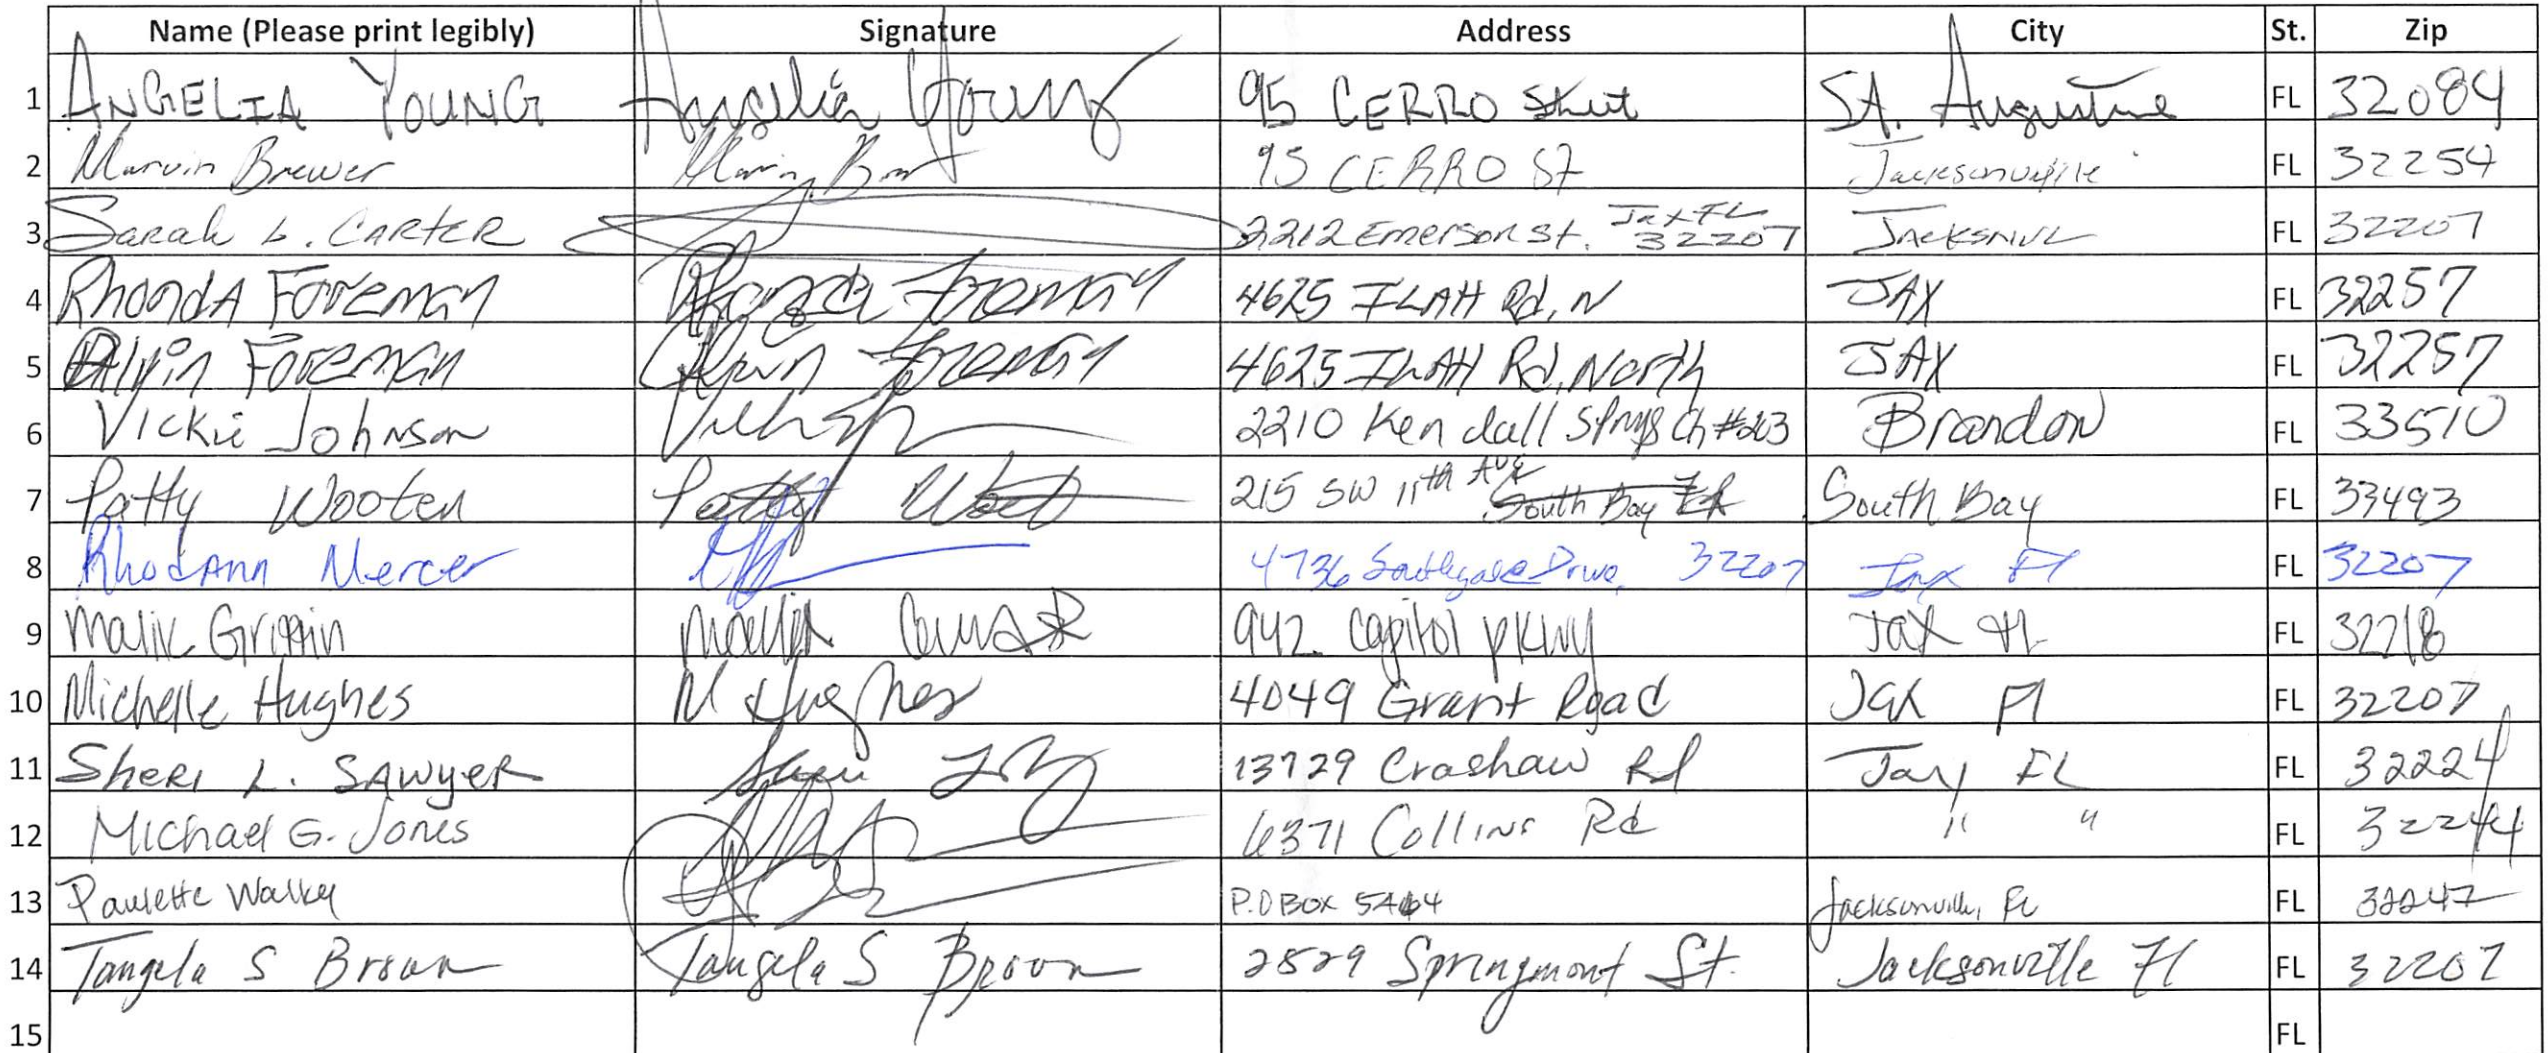 Name (Please print legibly) Signature Address City St. Zip
1 ANGELIA YOUNG Angelia Young 95 CERRO Street St. Augustine FL 32084
2 Marvin Brewer 95 CERRO St Jacksonville FL 32254
3 Sarah L. CARTER 2212 Emerson St. Jax FL 32207 FL 32207
4 RhondA Foreman Rhonda Foreman 4625 ILAH Rd, N JAX FL 32257
5 Alvin Foreman Alvin Foreman 4625 ILAH Rd, North JAX FL 32257
6 Vickie Johnson 2210 Kendall Sprngs Ch #203 Brandon FL 33510
7 Patty Wooten Patty 215 SW 11th AVE South Bay FL South Bay FL 33493
8 RhodAnn Mercer 4736 Southgate Drive, 32207 Jax Fl FL 32207
9 Malik Griffin 942 Capitol pkwy Jax FL FL 32218
10 Michelle Hughes M Hughes 4049 Grant Road Jax Fl FL 32207
11 Sheri L. SAwyeR 13729 Crashaw Rd Jax FL FL 32224
12 Michael G. Jones 6371 Collins Rd " " FL 32244
13 Paulette Walker P.O Box Jacksonville, FL FL 32247
14 Tangela S Brown Tangela S Brown 2529 Springmont St. Jacksonville Fl FL 32207
15 FL